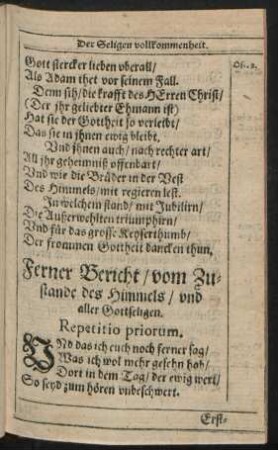 Der Seligen vollkommenheit.
Gott stercker lieben vberall/
Als Adam thet vor seinem Fall.
Denn sih/die krafft des HErren Christ/
(Der jhr geliebter Ehmann ist)
Hat sie der Gottheit so verleibt/
Das sie in jhnen ewig bleibt.
Vnd jhnen auch/nach rechter art/
All jhr geheimniß offenbart/
Vnd wie die Brüder in der Vest
Des Himmels/mit regieren lest.
In welchem stand/mit Jubilirn/
Die Außerwehlten triumphirn/
Vnd für das grosse Keyserthumb/
Der frommen Gottheit dancken thun.
Ferner Bericht/vom Zu-
stande des Himmels/vnd
aller Gottseligen.
Repetitio priorum.
VNd das ich euch noch ferner sag/
Was ich wol mehr gesehn hab/
Dort in dem Tag/der ewig wert/
So seyd zum hören vnbeschwert.
Erst-